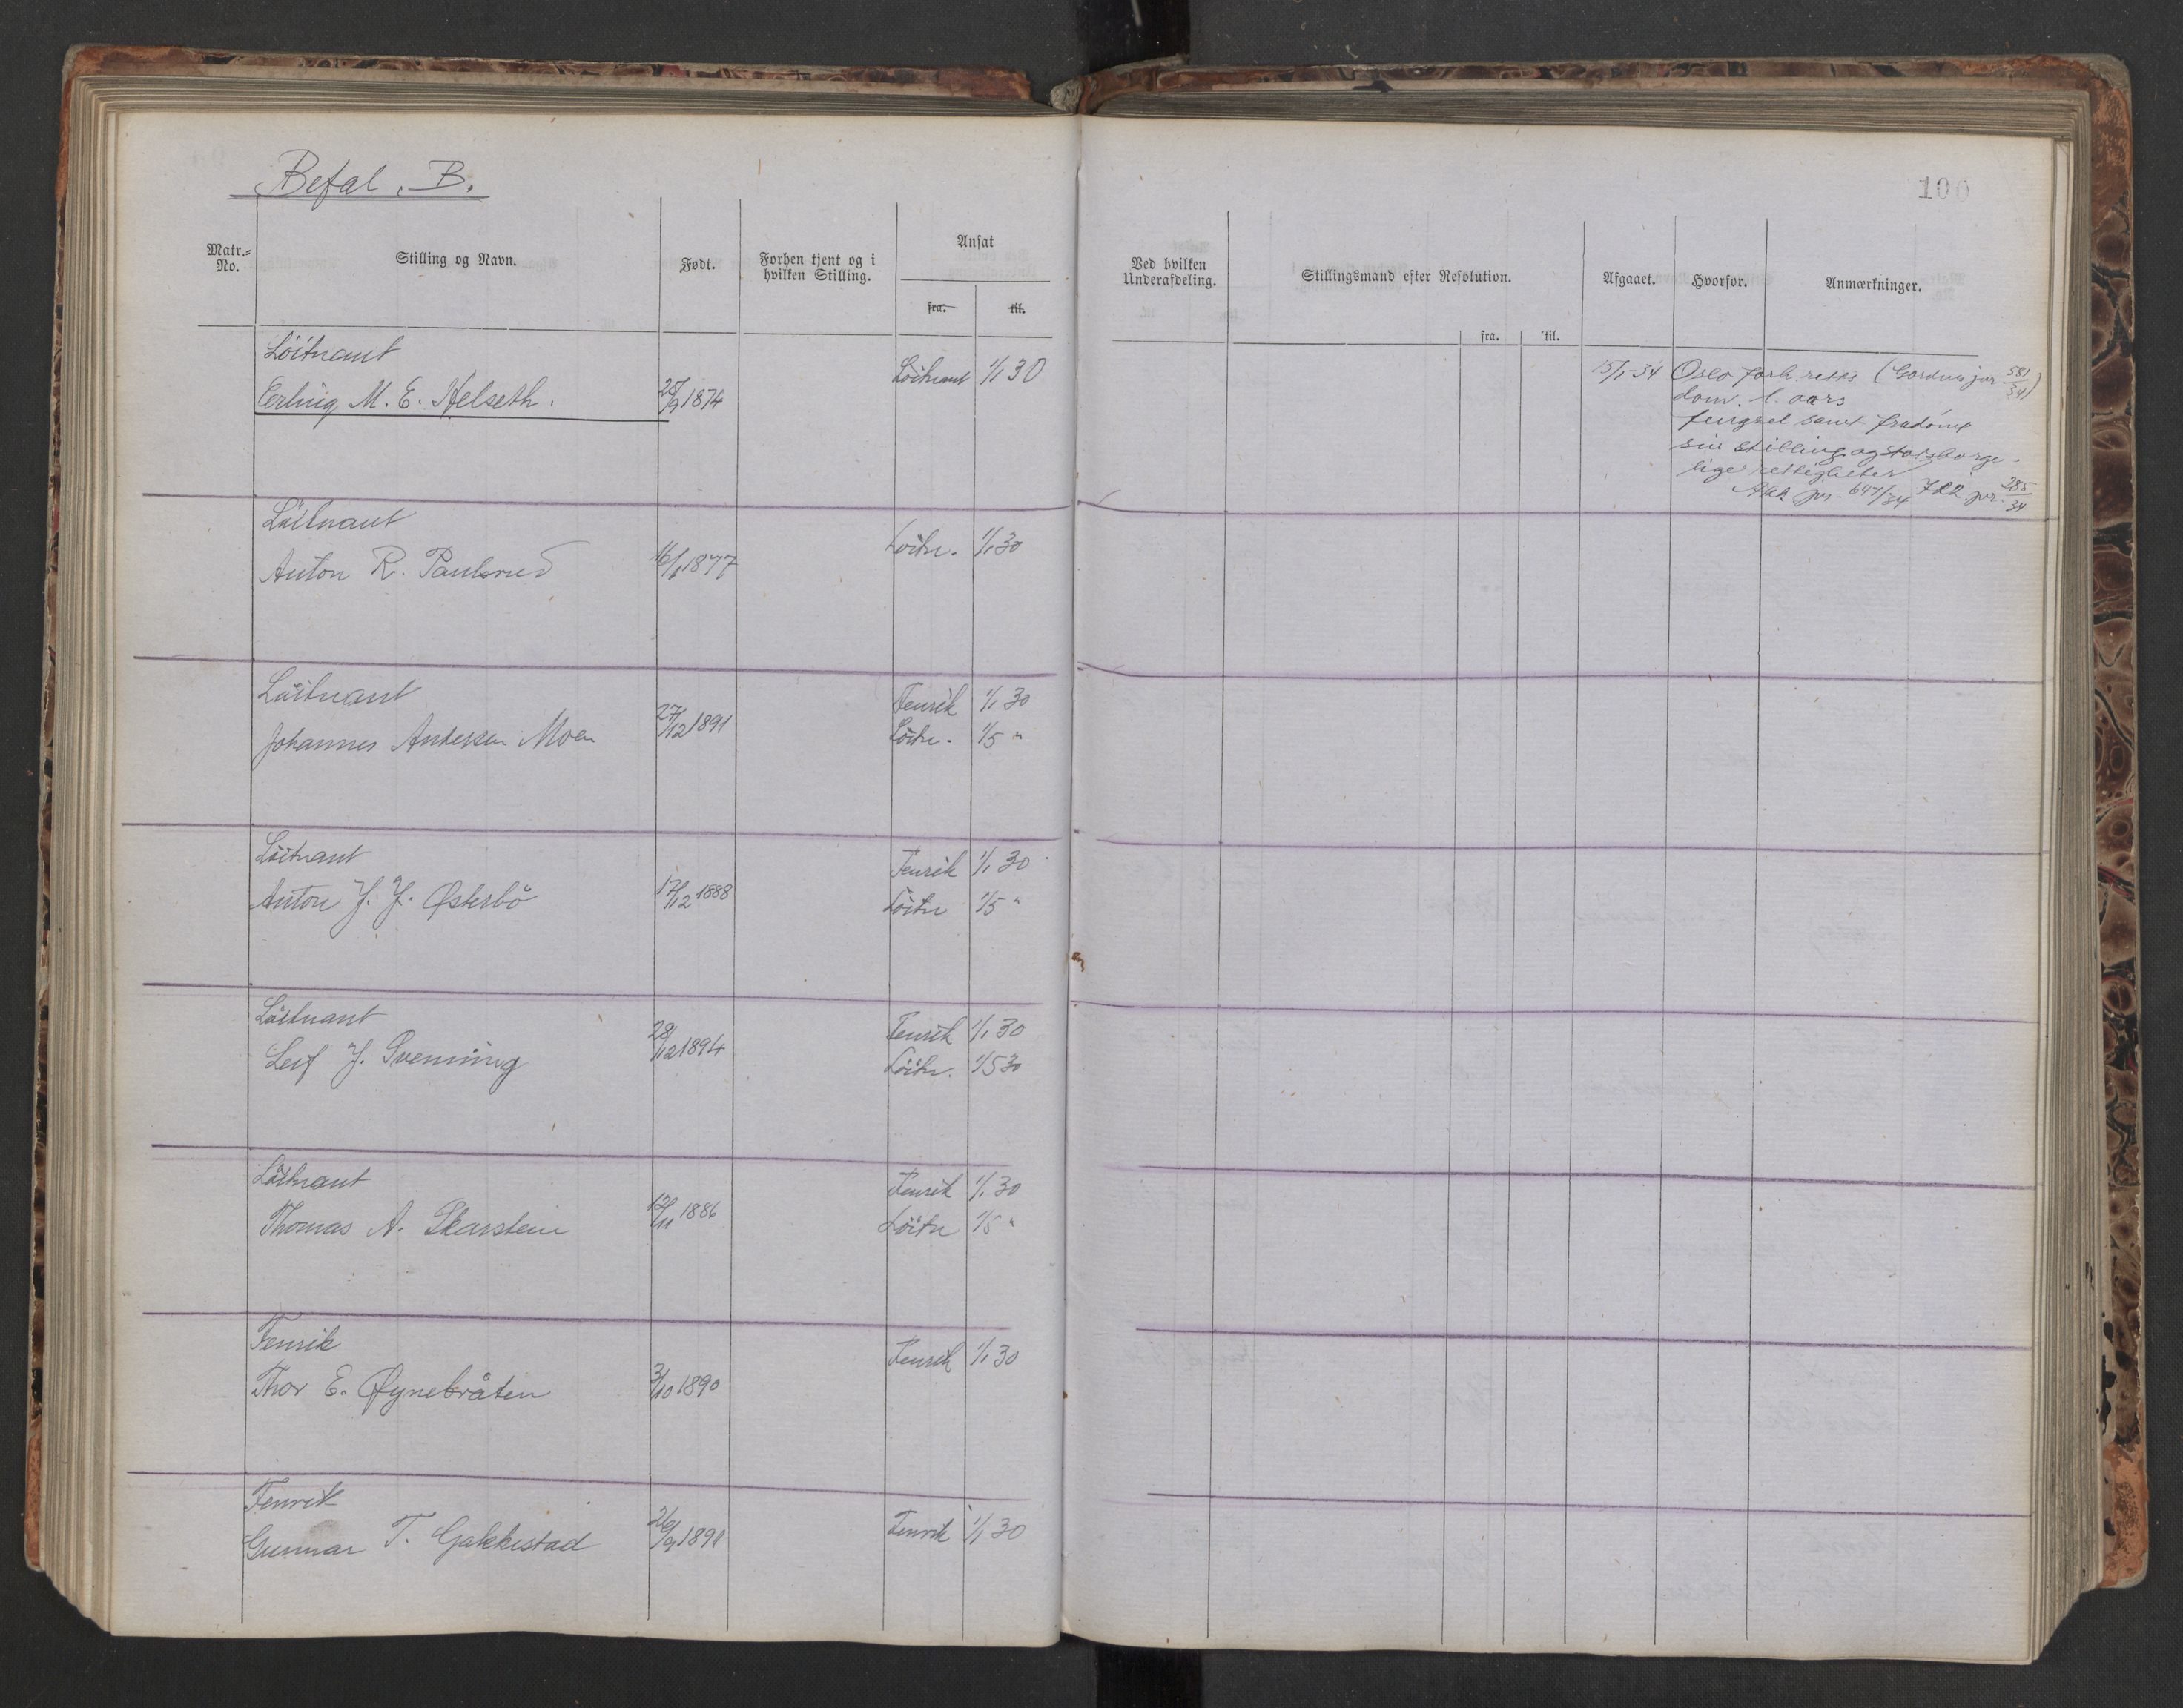 Befal. B.
100
Matr.=No.
Stilling og Navn.
Født.
Forhen tjent og i hvilken Stilling.
Ansat
fra.
til.
Ved hvilken Underafdeling.
Stillingsmand efter Resolution.
fra.
til.
Afgaaet.
Hvorfor.
Anmærkninger.
Löitnant
Erling M. E. Helseth.
25/9 1874
Löitnant 1/1 30
15/1-34 Oslo forh. retts (Gardens jnr 581/34)
dom. 1. aars
fengsel samt fradömt
sin stilling og statsborge-
lige rettigheter
jnr. 647/34 722 jnr. 285/34
Löitnant
Anton R. Paulsrud
16/1 1877
Löitn. 1/1 30
Löitnant
Johannes Andersen Moen
27/12 1891
Fenrik 1/1 30
Löitn. 1/5 "
Löitnant
Anton J. J. Østerbö
17/12 1888
Fenrik 1/1 30
Löitn 1/5 "
Löitnant
Leif J. Svenning
28/12 1894
Fenrik 1/1 30
Löitn. 1/5 30
Löitnant
Thomas A. Skarstein
12/11 1886
Fenrik 1/1 30
Löitn 1/5 "
Fenrik
Thor E. Øynebråten
3/10 1890
Fenrik 1/1 30
Fenrik
Gunnar T. Gakkestad
26/9 1891
Fenrik 1/1 30